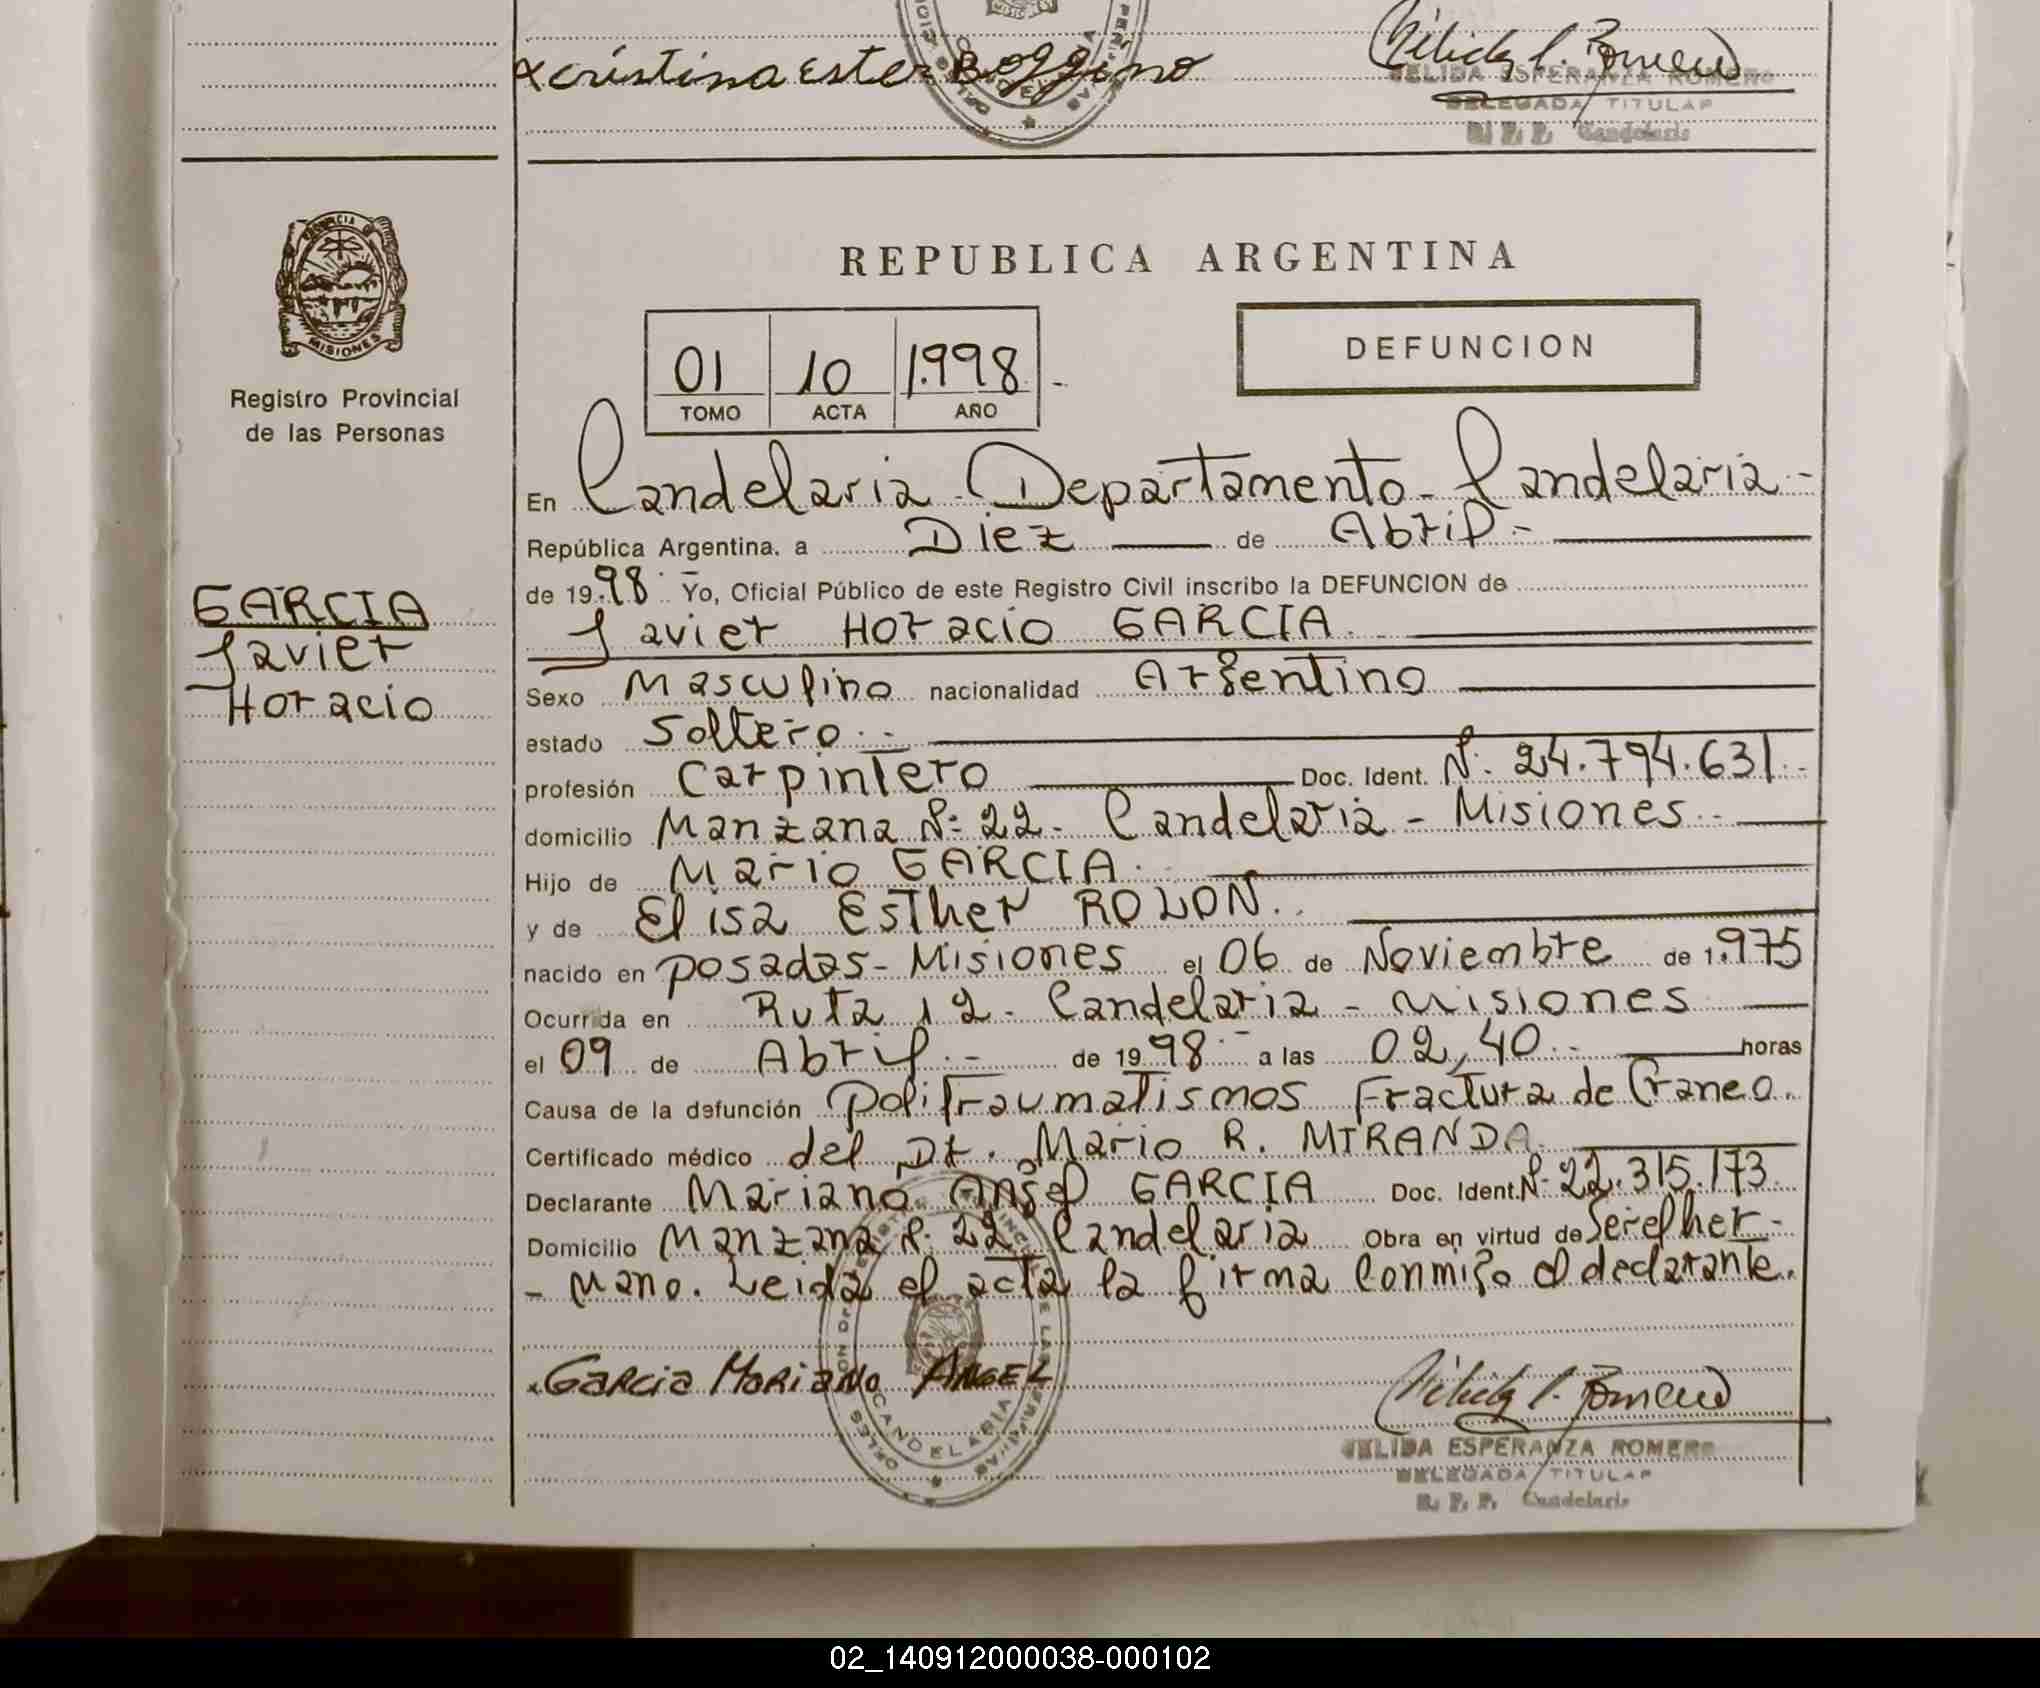 x cristina ester Boggino
NELIDA ESPERANZA ROMERO
DELEGADA TITULAR
R. P. P. Candelaria
PROVINCIA
MISIONES
Registro Provincial
de las Personas
GARCIA
Javier
Horacio
REPUBLICA ARGENTINA
01 10 1.998.-
TOMO ACTA AÑO
DEFUNCION
En Candelaria - Departamento - Candelaria -
República Argentina. a Diez de Abril.-
de 19.98.- Yo, Oficial Público de este Registro Civil inscribo la DEFUNCION de
Javier Horacio GARCIA.
Sexo Masculino nacionalidad Argentino
estado Soltero.-
profesión Carpintero Doc. Ident. Nº 24.794.631.-
domicilio Manzana Nº 22- Candelaria - Misiones.-
Hijo de Mario GARCIA.
y de Elisa Esther ROLON..
nacido en posadas - Misiones el 06 de Noviembre de 1.975
Ocurrida en Ruta 12 - Candelaria - Misiones
el 09 de Abril.- de 19 98.- a las 02,40.- horas
Causa de la defunción politraumatismos Fractura de Craneo.
Certificado médico del Dr. Mario R. MIRANDA.
Declarante Mariano Angel GARCIA Doc. Ident. Nº 22.315.173.
Domicilio Manzana Nº 22 Candelaria Obra en virtud de Ser el her-
- mano. Leida el acta la firma Conmigo el declarante.
x Garcia Mariano ANGEL
CANDELARIA
NELIDA ESPERANZA ROMERO
DELEGADA TITULAR
R. P. P. Candelaria
02_140912000038-000102